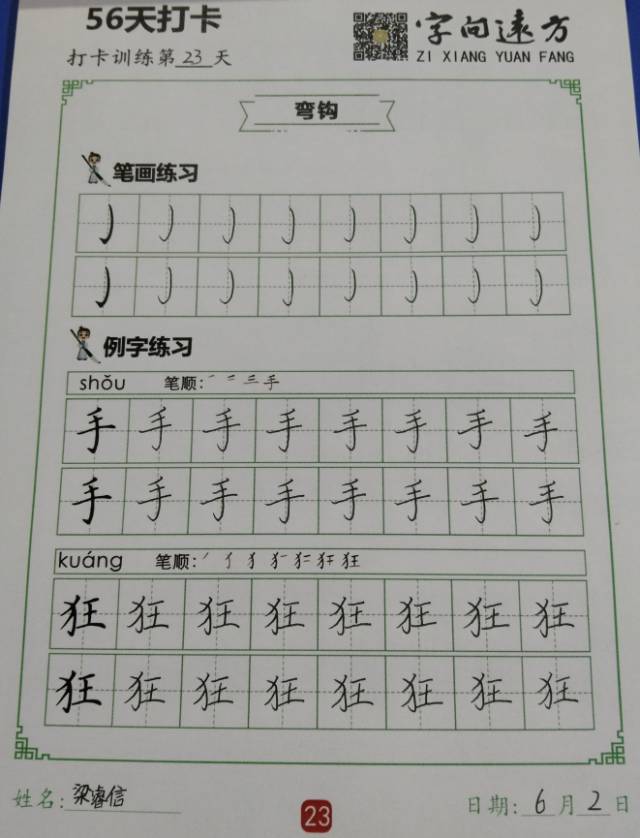 56天打卡
打卡训练第23天
字向远方
ZI XIANG YUAN FANG
弯钩
笔画练习
例字练习
shǒu 笔顺: 一 二 三 手
手 手 手 手 手 手 手 手
手 手 手 手 手 手 手 手
kuáng 笔顺: 狂
狂 狂 狂 狂 狂 狂 狂 狂
狂 狂 狂 狂 狂 狂 狂 狂
姓名: 梁睿信
23
日期: 6月2日